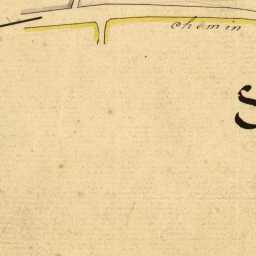 chemin
S